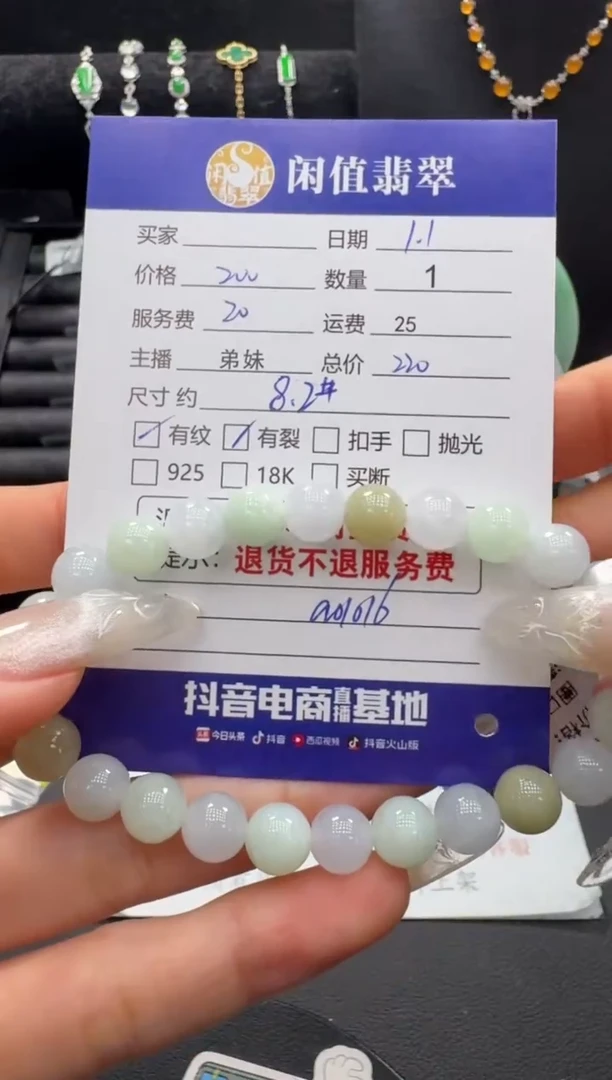 闲值翡翠
买家 日期 1.1
价格 200 数量 1
服务费 20 运费 25
主播 弟妹 总价 220
尺寸 约 8.2#
有纹 有裂 扣手 抛光
925 18K 买断
提示: 退货不退服务费
a01016
抖音电商直播基地
头条 今日头条 抖音 西瓜视频 抖音火山版